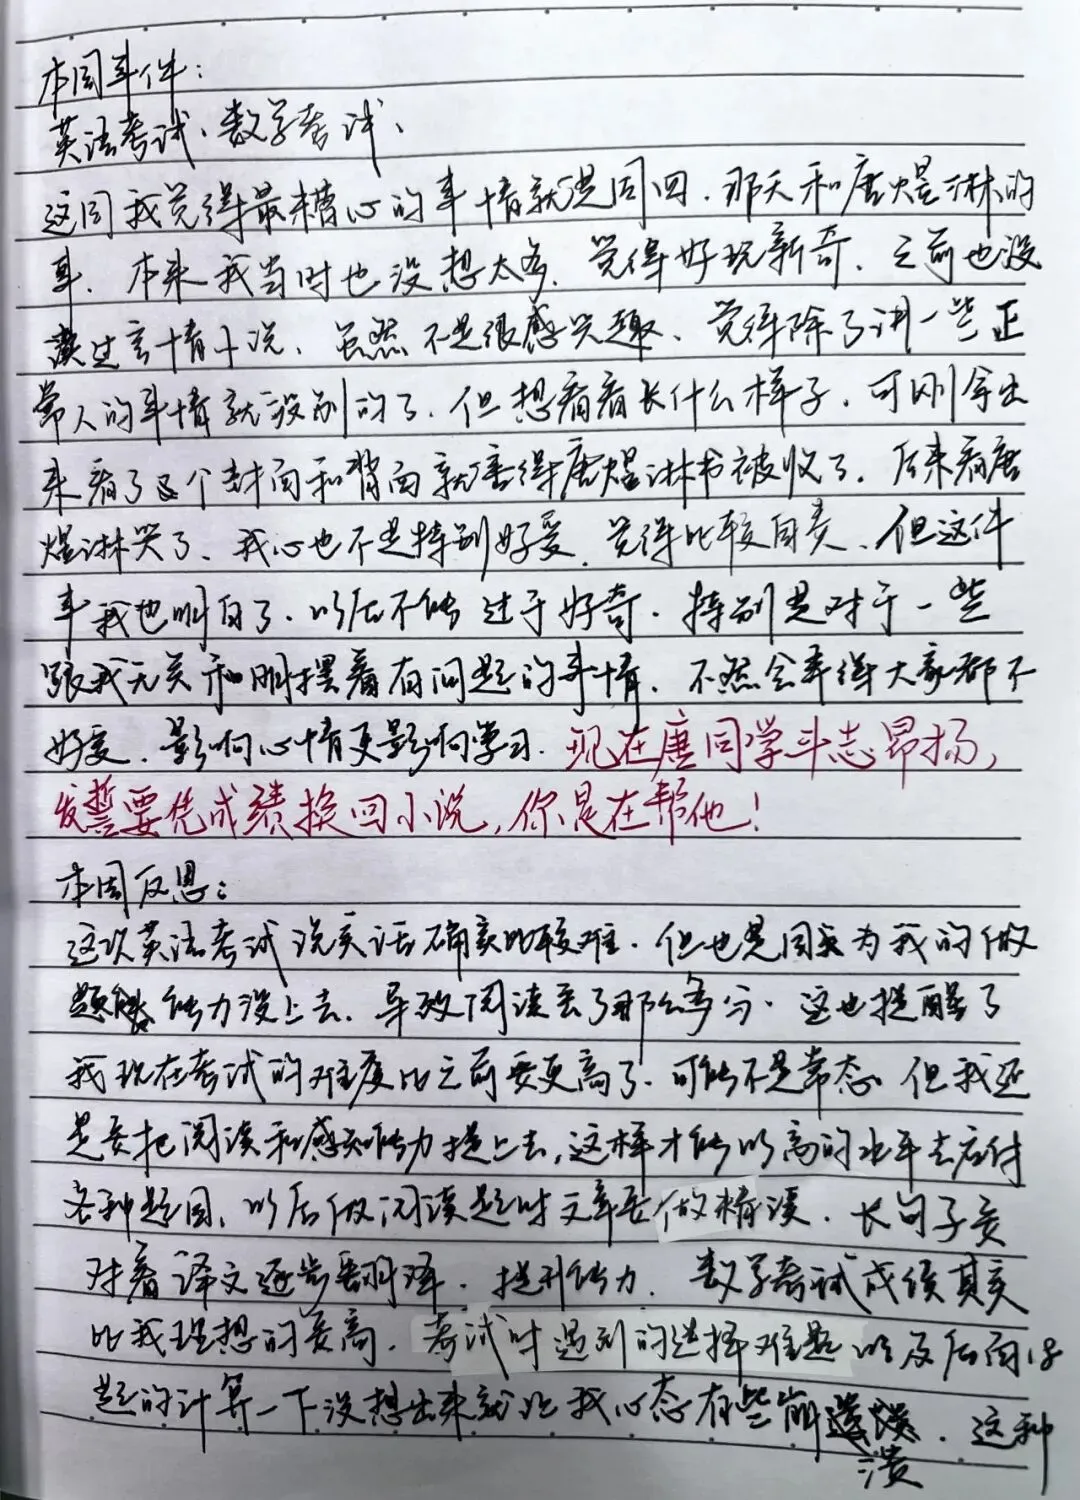 本周事件:
英语考试、数学考试、
这周我觉得最糟心的事情就是周四、那天和唐煜淋的
事、本来我当时也没想太多、觉得好玩新奇、之前也没
读过言情小说、虽然不是很感兴趣、觉得除了讲一些正
常人的事情就没别的了、但想看看长什么样子、可刚拿出
来看了个封面和背面就害得唐煜淋书被收了、后来看唐
煜淋哭了、我心也不是特别好受、觉得比较自责、但这件
事我也明白了、以后不能过于好奇、特别是对于一些
跟我无关和明摆着有问题的事情、不然会弄得大家都不
好受、影响心情更影响学习、现在唐同学斗志昂扬,
发誓要凭成绩换回小说,你是在帮他!
本周反思:
这次英语考试说实话确实比较难、但也是因为我的做
题能力没上去、导致阅读丢了那么多分、这也提醒了
我现在考试的难度比之前要更高了、可能不是常态。但我还
是要把阅读和感知能力提上去,这样才能以高的水平去应付
各种题目、以后做阅读题时文章要做精读、长句子要
对着译文逐步翻译、提升能力、数学考试成绩其实
比我理想的要高、考试时遇到的选择难题以及后面18
题的计算一下没想出来就让我心态有些崩溃、这种